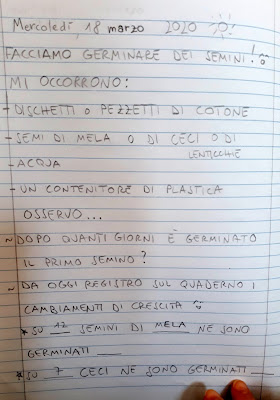 Mercoledí, 18 marzo 2020
FACCIAMO GERMINARE DEI SEMINI!
MI OCCORRONO:
- DISCHETTI o PEZZETTI DI COTONE
- SEMI DI MELA O DI CECI O DI
LENTICCHIE
- ACQUA
- UN CONTENITORE DI PLASTICA
OSSERVO...
~ DOPO QUANTI GIORNI È GERMINATO
IL PRIMO SEMINO?
~ DA OGGI REGISTRO SUL QUADERNO I
CAMBIAMENTI DI CRESCITA
* SU 12 SEMINI DI MELA NE SONO
GERMINATI ___
* SU 7 CECI NE SONO GERMINATI ___